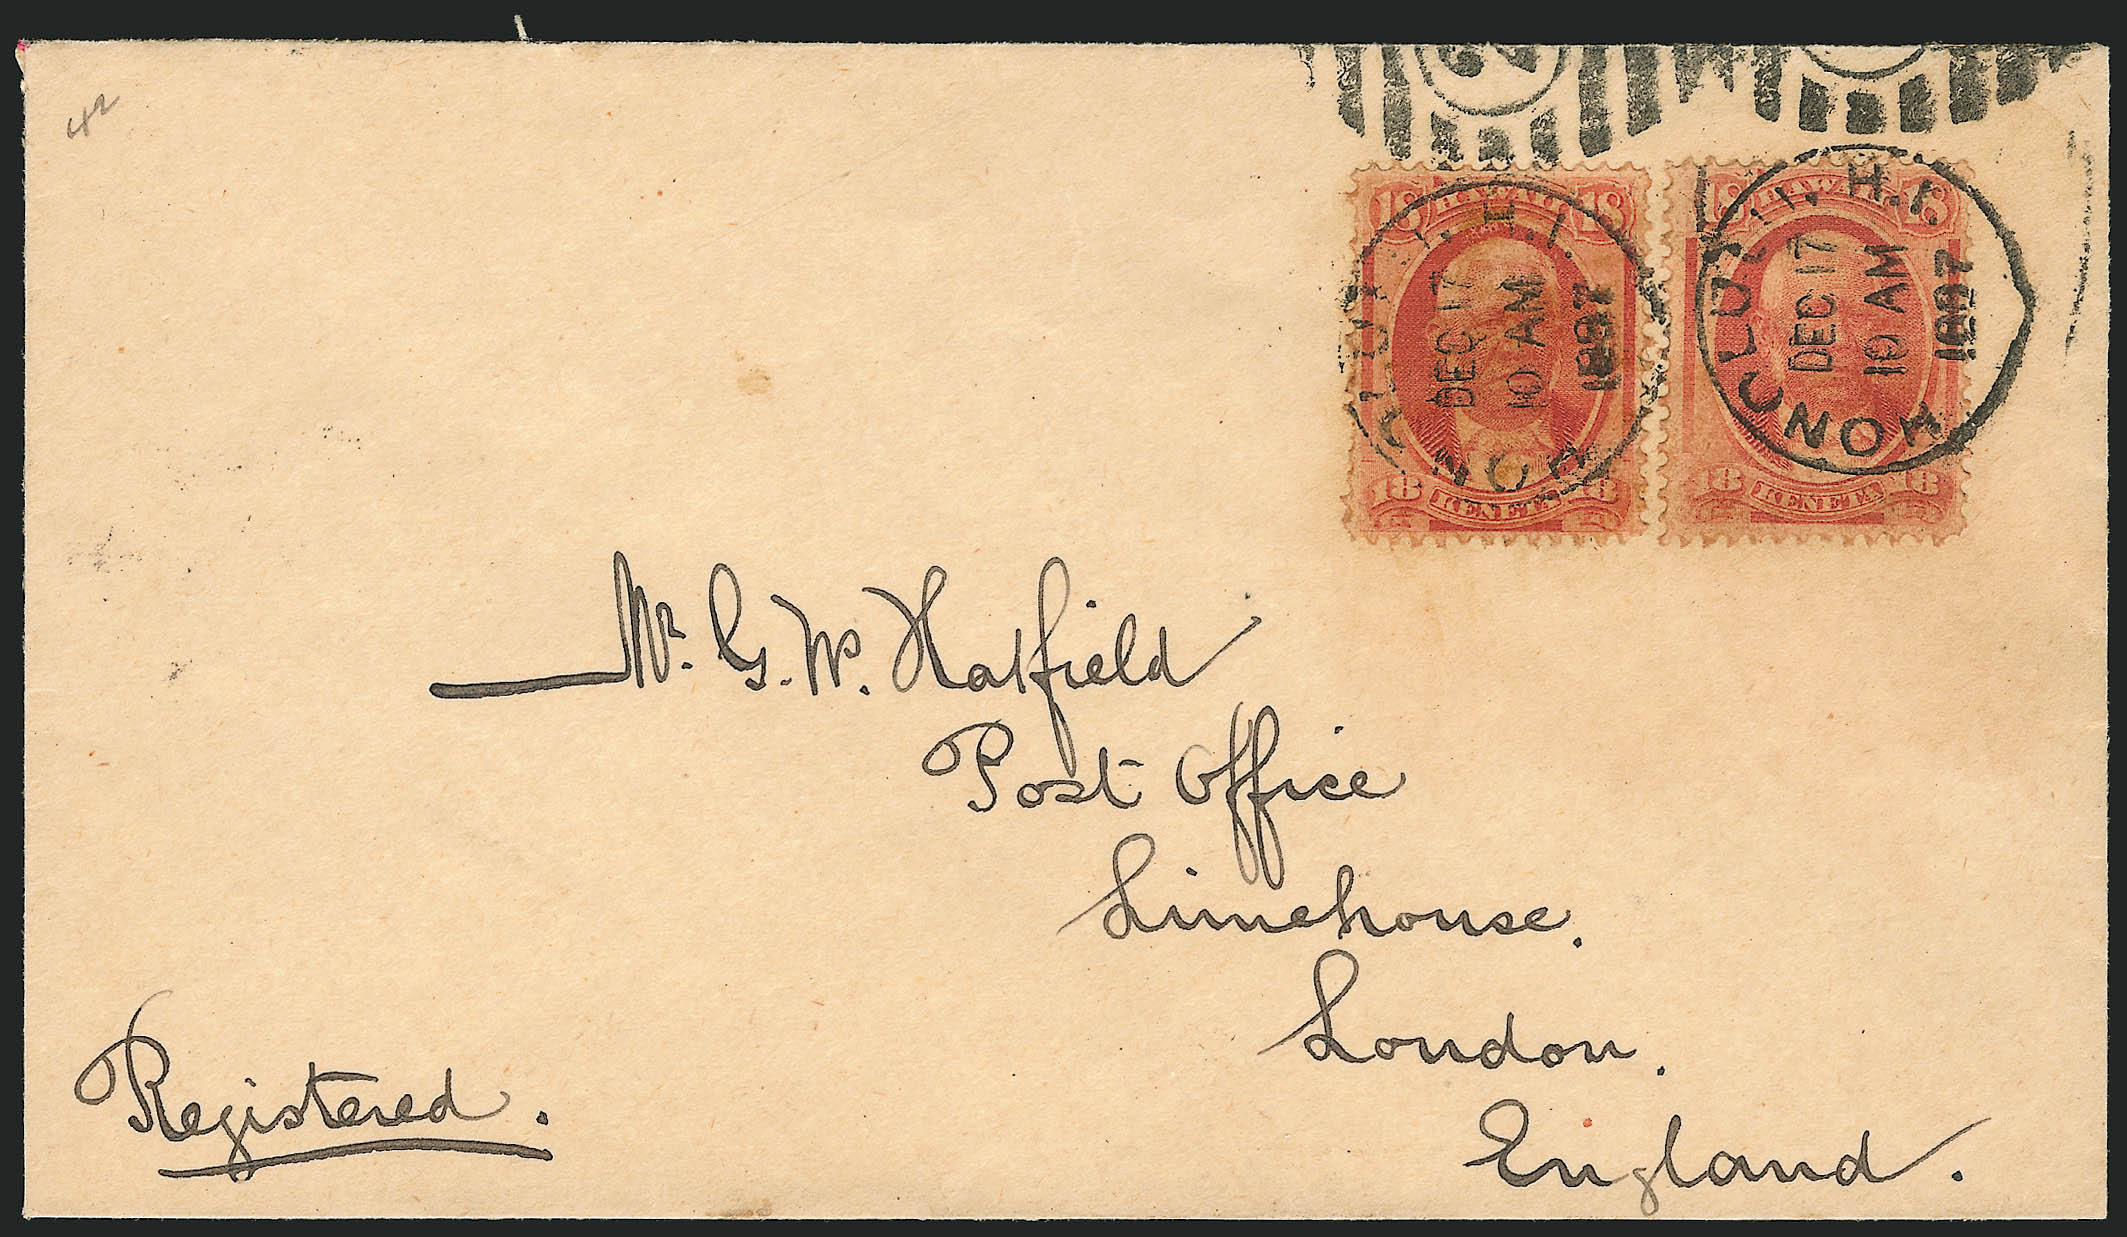 42
18 HAWAII 18
18 KENETA 18
HONOLULU. H.I.
DEC 17
10 AM
1897
18 HAWAII 18
18 KENETA 18
HONOLULU. H.I.
DEC 17
10 AM
1897
Mr. G. Ws. Hatfield
Post Office
Limehouse.
London.
England.
Registered.